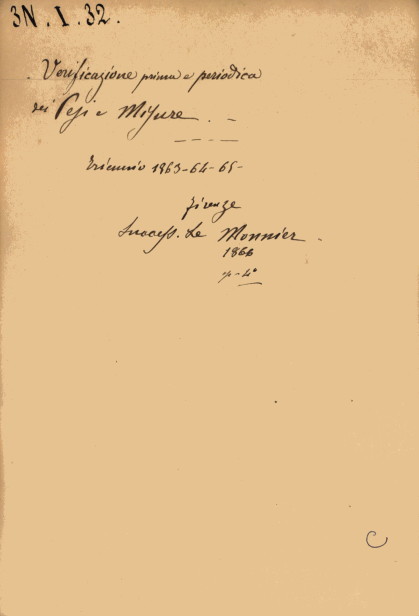 3N.I.32.
Verificazione prima e periodica
dei Pesi e Misure. -
Triennio 1863-64-65-
Firenze
Success. Le Monnier.
1866
C